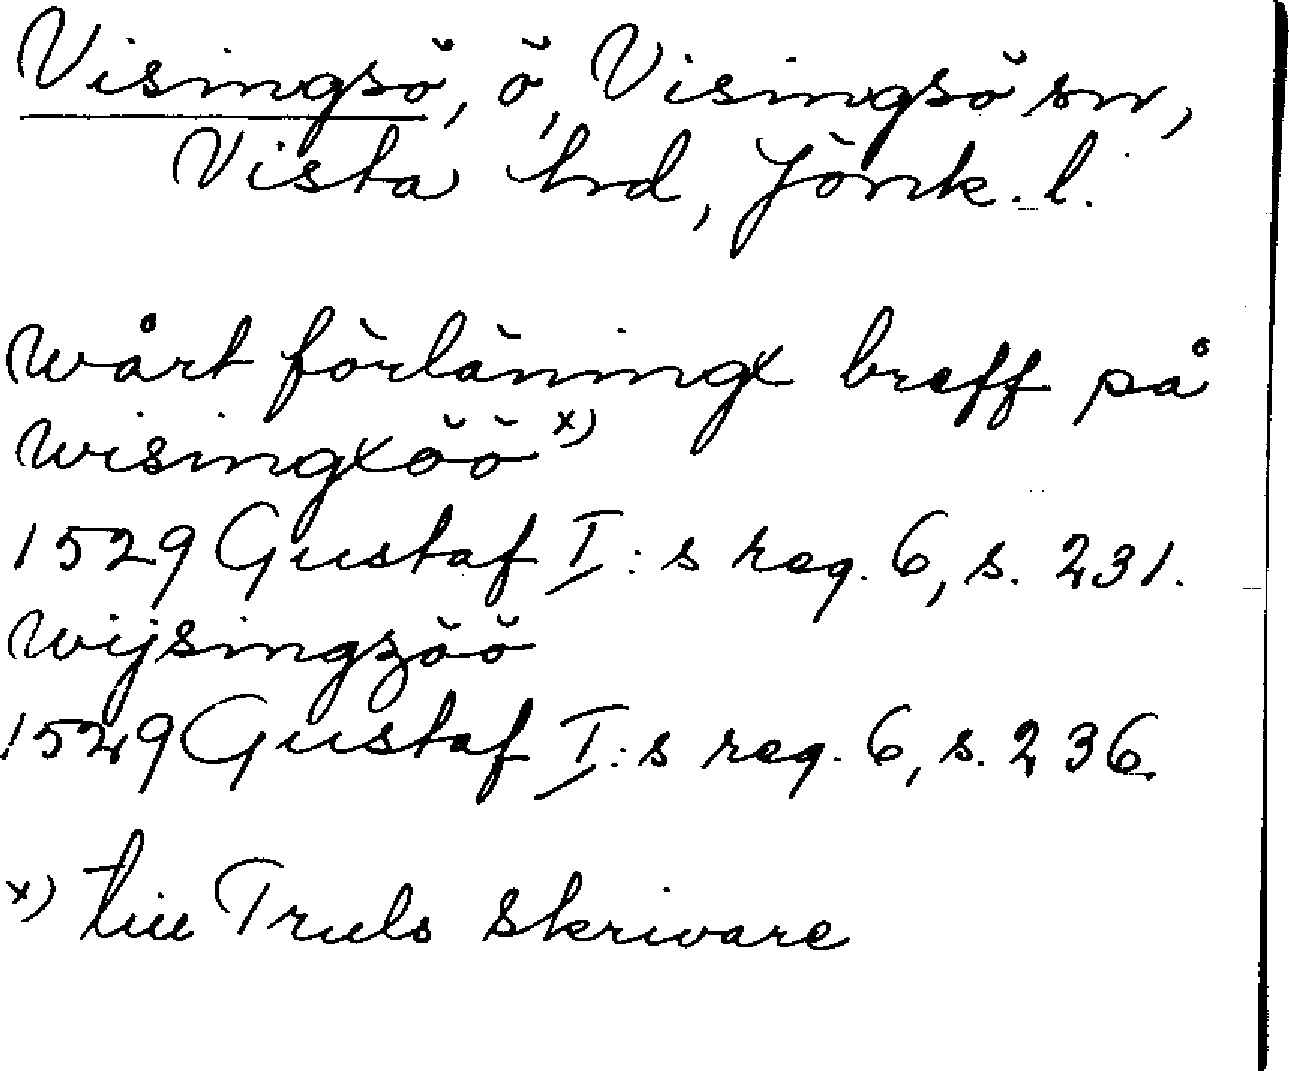 Visingsö, ö, Visingsö sn,
Vista hd, Jönk. l.
Wårt förläningx breff på
Wisingxöö x)
1529 Gustaf I:s reg. 6, s. 231.
Wijsingzöö
1529 Gustaf I:s reg. 6, s. 236.
x) till Truls Skrivare